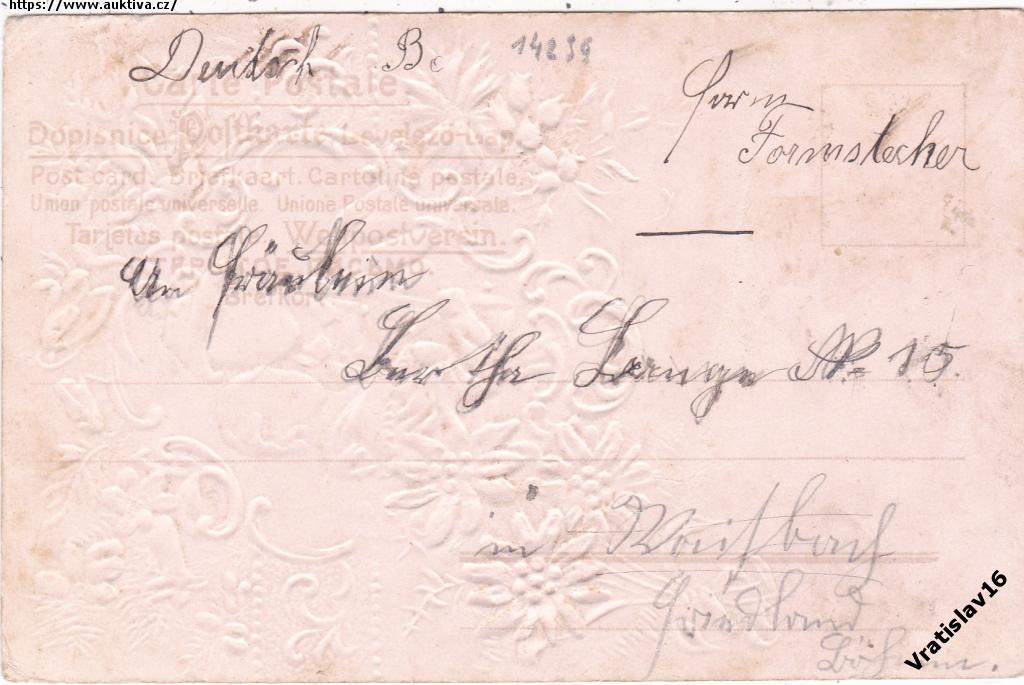 https://www.auktiva.cz/
Deutsch B
14239
Carte Postale.
Dopisnice Postkarte Levelező-Lap
Post card. Briefkaart. Cartolina postale.
Union postale universelle. Unione Postale universale.
Tarjetas postal Weltpostverein.
Brefkort
Formstecher
An Fräulein
Bertha Lange No 15.
in Weißbach
Böhmen.
Vratislav16